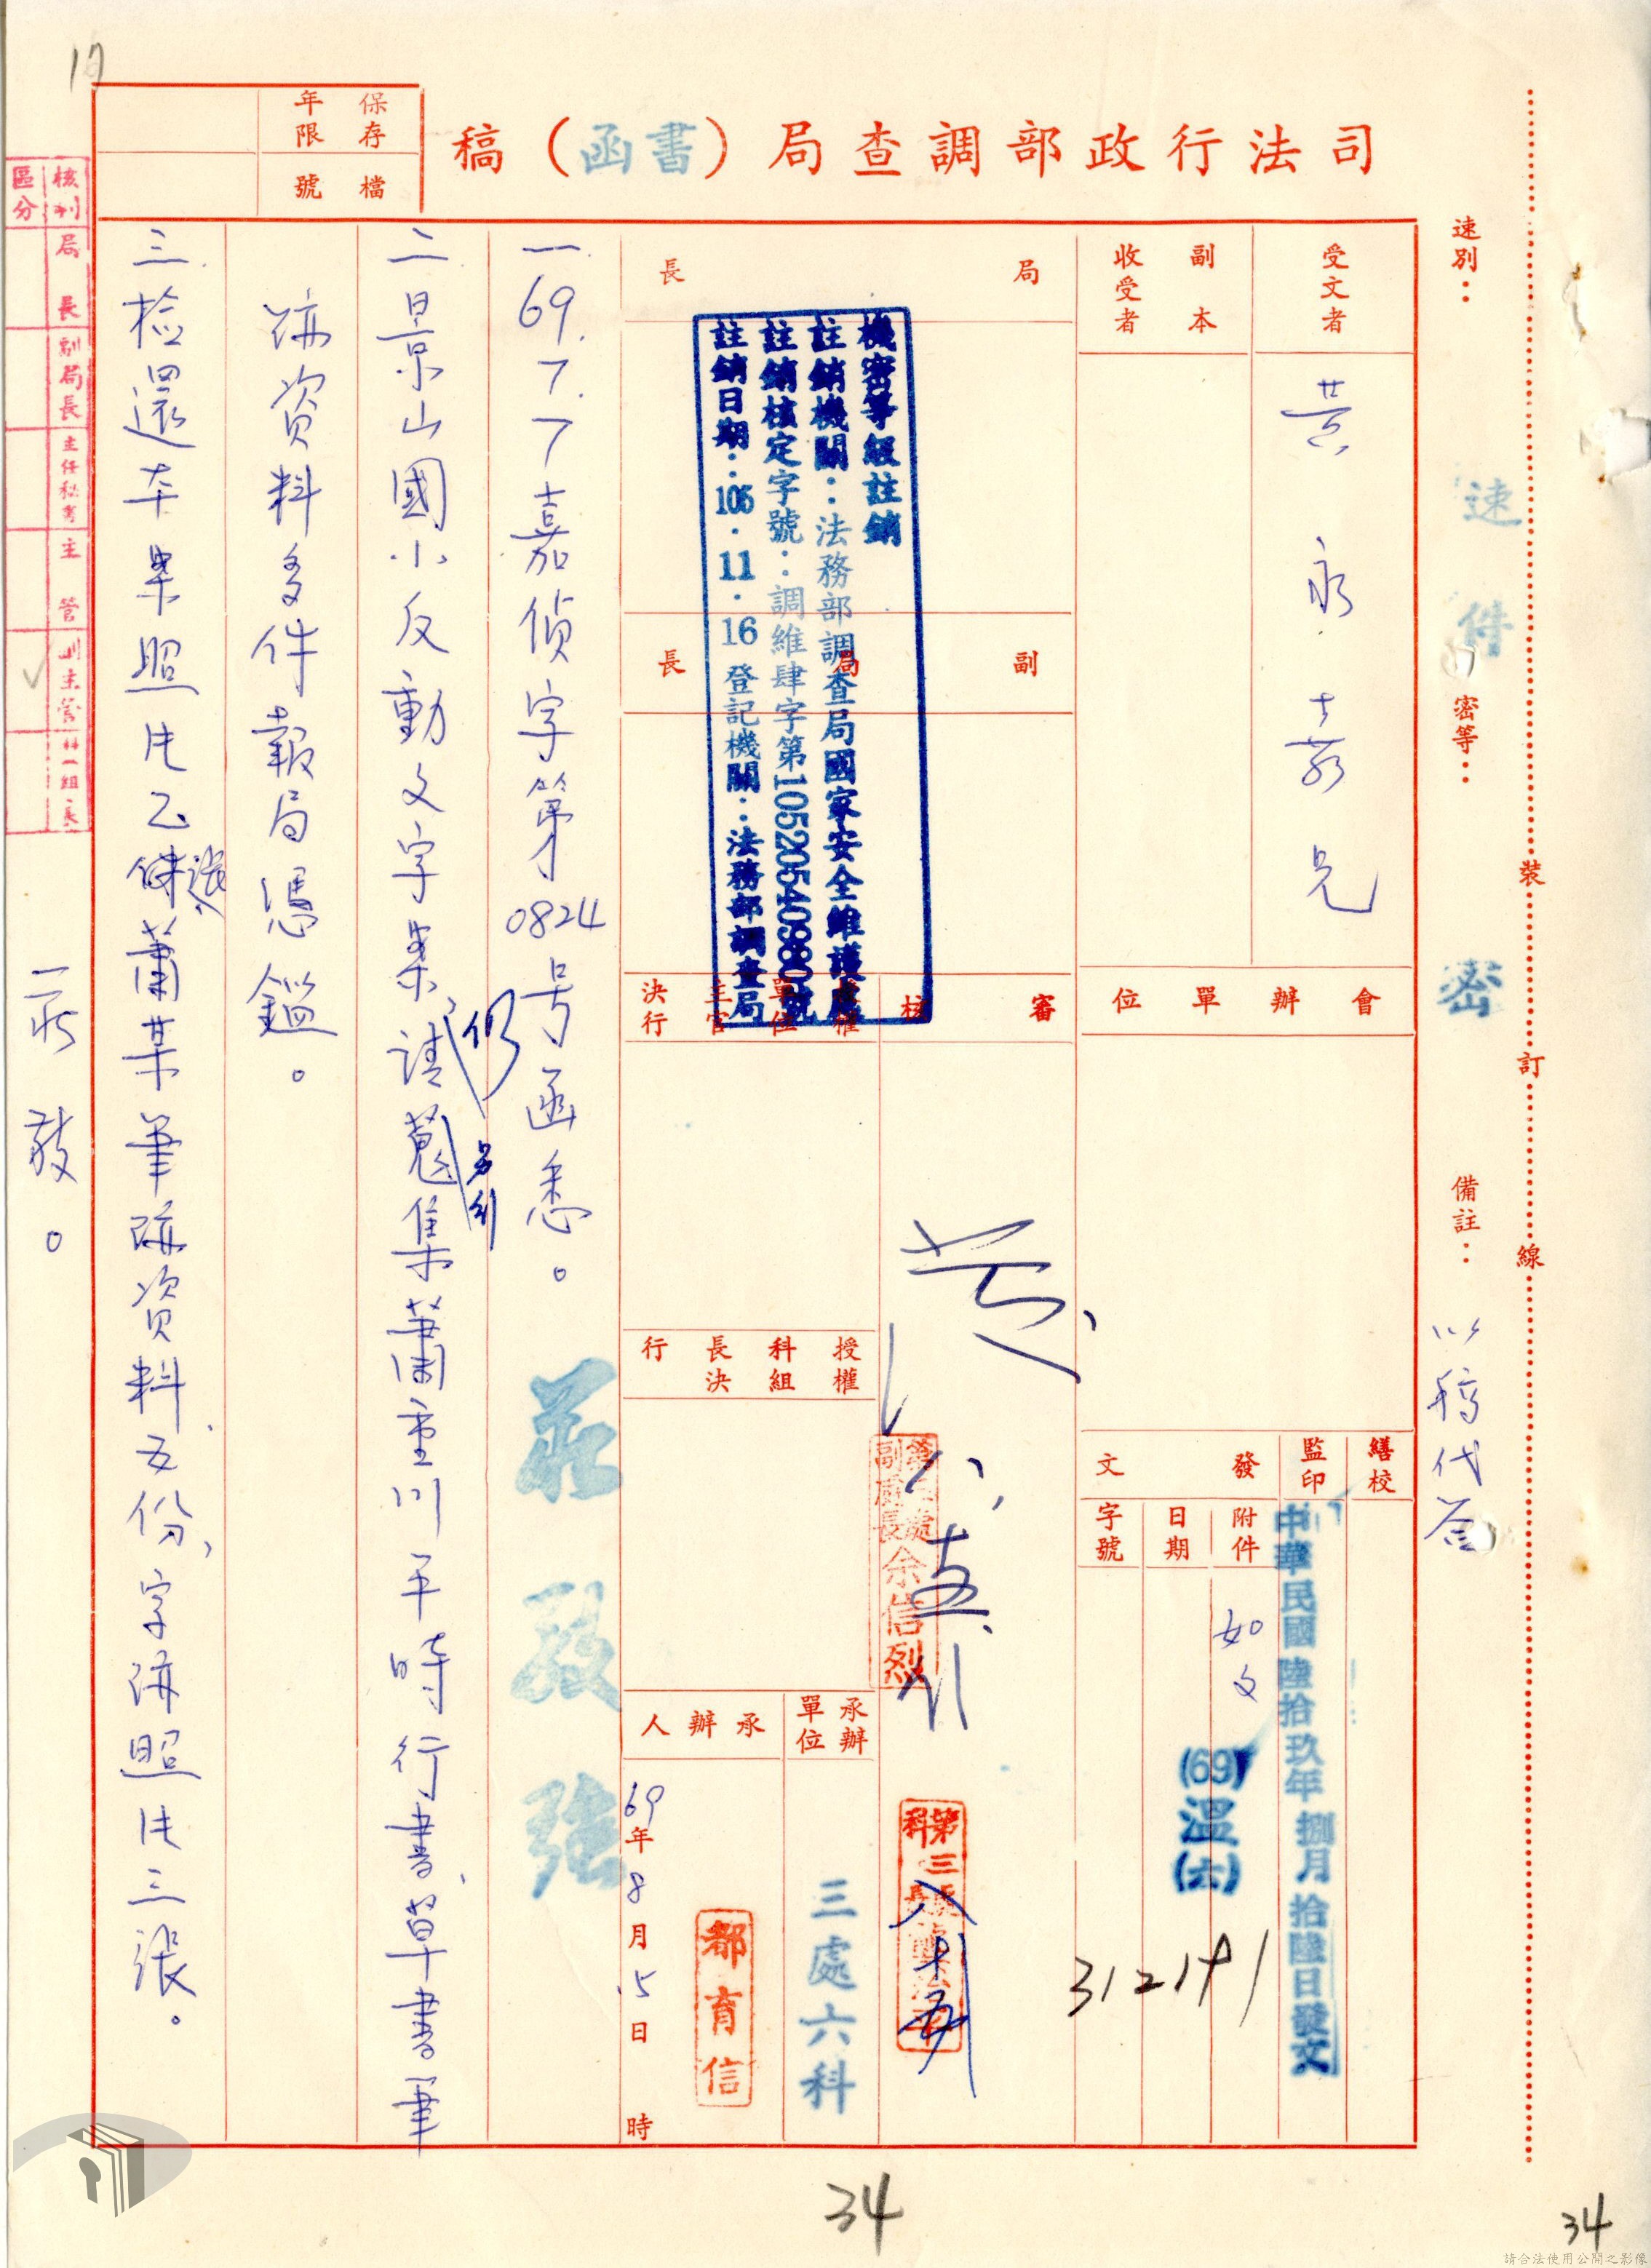 司法行政部調查局（書函）稿
保存年限
檔號
速別：
速件
密等：
密
備註：
以稿代簽
裝
訂
線
受文者
黃永嘉兄
副本收受者
會辦單位
繕校
監印
發文
附件
如文
日期
字號
中華民國陸拾玖年捌月拾陸日發文
(69)溫(六)
312191
局長
副局長
審核
授權單位主官決行
授權科組長決行
承辦單位
三處六科
承辦人
都育信
69年8月15日時
副處長余信烈
機密等級註銷
註銷機關：法務部調查局國家安全維護處
註銷核定字號：調維肆字第10520540980號
註銷日期：105.11.16登記機關：法務部調查局
一69.7.7嘉偵字第0824号函悉。
二景山國小反動文字案，仍請另行蒐集蕭重川平時行書、草書筆
跡資料多件報局憑鑑。
三檢還本案照片乙張蕭某筆跡資料五份，字跡照片三張。
敬。
核判區分
局長
副局長
主任秘書
主管
副主管
科組長
17
34
34
請合法使用公開之影像